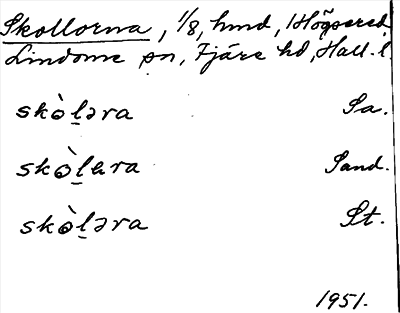 Skollorna, 1/8, hmd, Högsered
Lindome sn, Fjäre hd, Hall. l
skòl̠əra Sa.
skòl̠ɐra Sand.
skòl̠əra St.
1951.